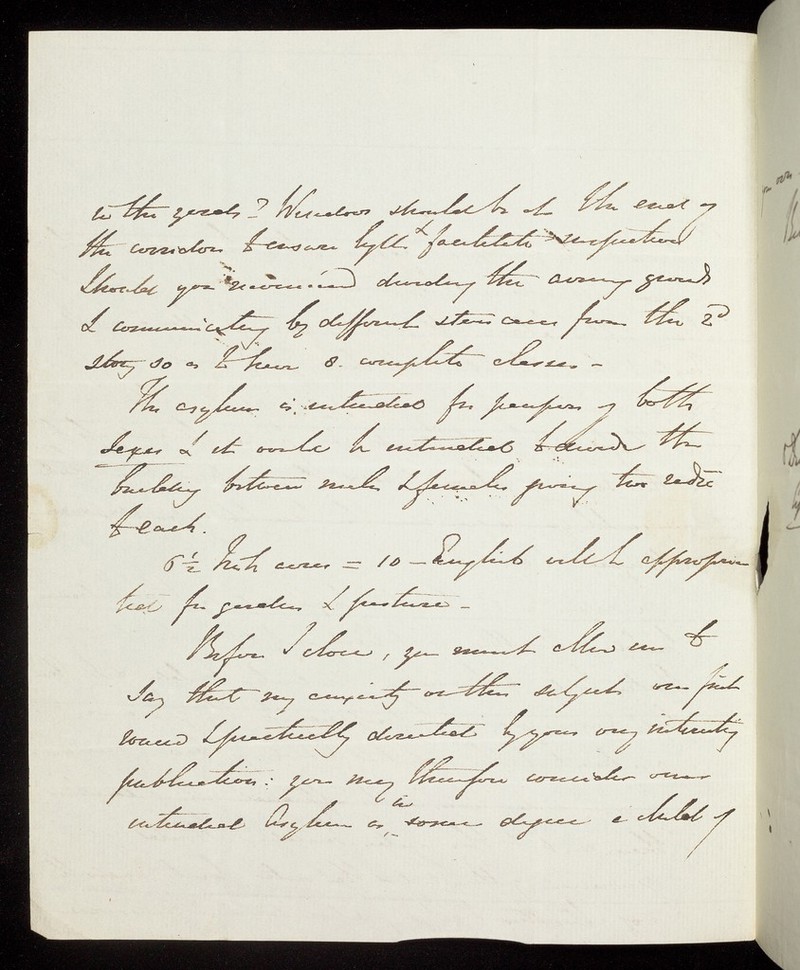 to the yards? Windows should be at the end of
the corridors to ensure light & facilitate inspection
Should you recommend dividing the airing grounds
& communicating by different stair cases from the 2d
story so as to have 8. complete classes -
The asylum is intended for paupers of both
sexes & it would be intended to divide the
building between males & females giving two radii
to each.
6½ Irish acres = 10 - English will be appropria
ted for garden & pasture -
Before I close, you must allow me to
say that my anxiety on this subject was first
roused & practically directed by your very interesting
publication: you may therefore consider our
intended Asylum as in some degree a child of